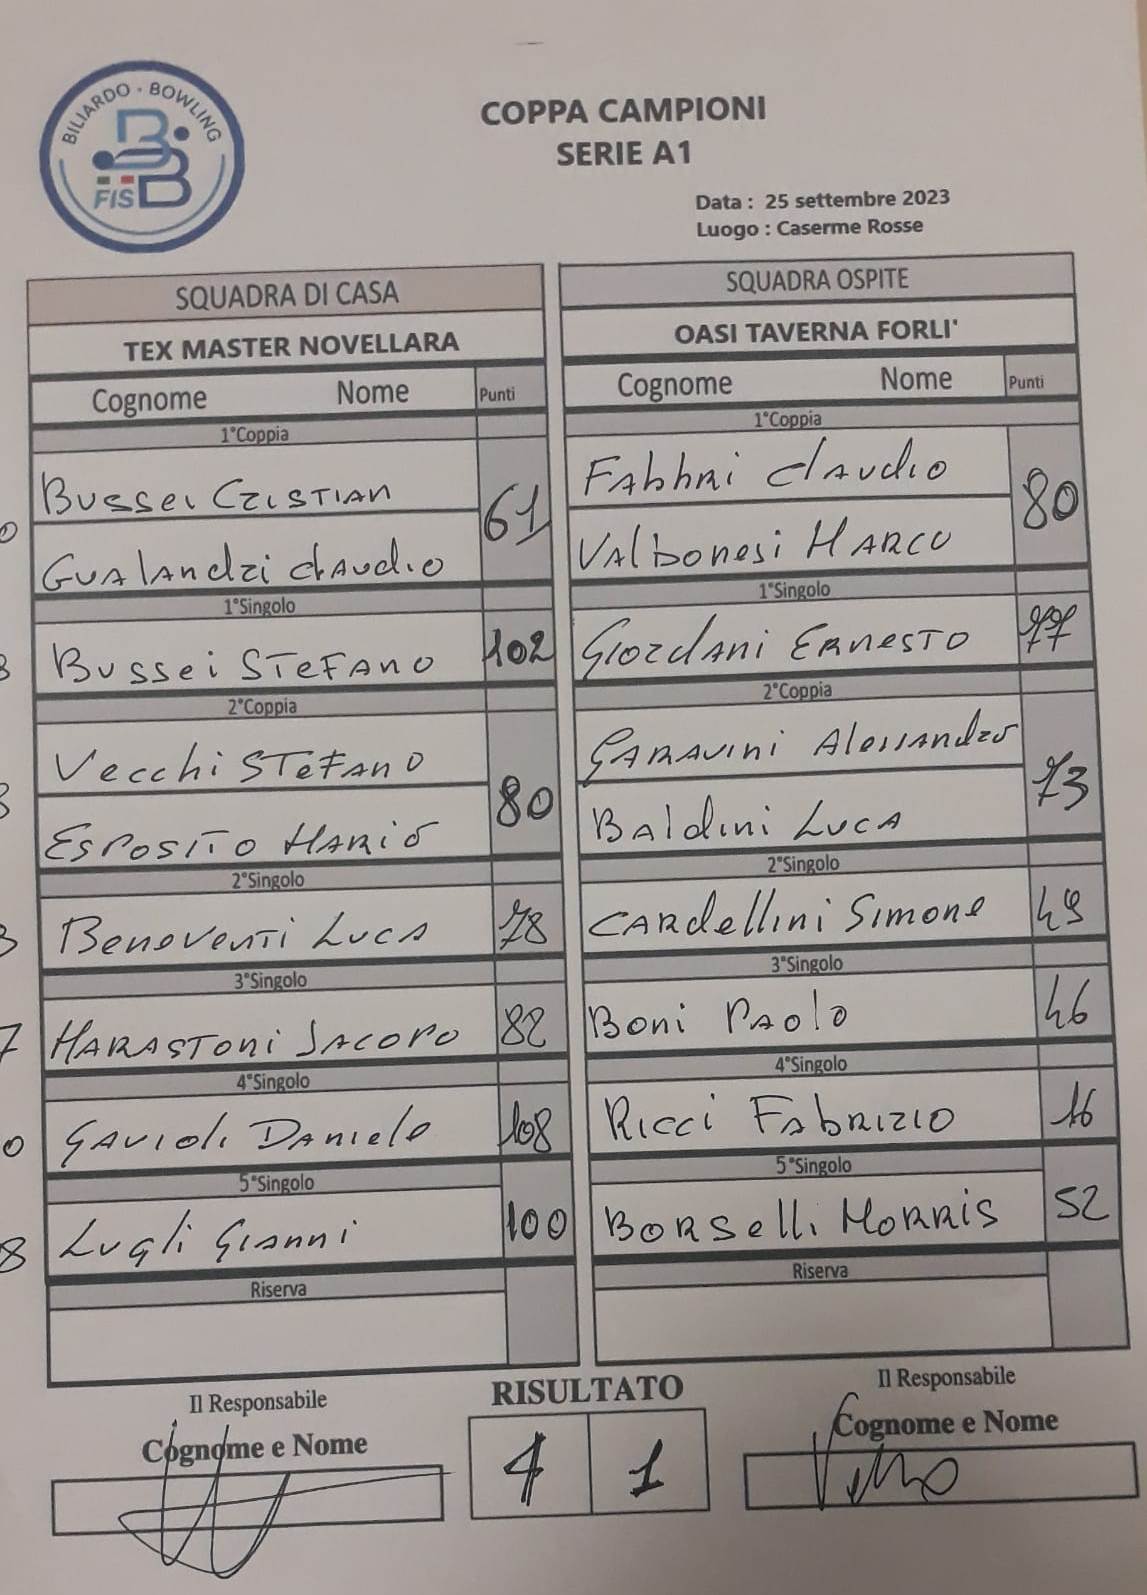 BILIARDO - BOWLING
FISBB
COPPA CAMPIONI
SERIE A1
Data : 25 settembre 2023
Luogo : Caserme Rosse
SQUADRA DI CASA
TEX MASTER NOVELLARA
Cognome Nome Punti
1°Coppia
Bussei Cristian 61
Gualandri Claudio
1°Singolo
Bussei Stefano 102
2°Coppia
Vecchi Stefano 80
Esposito Mario
2°Singolo
Beneventi Luca 78
3°Singolo
Marastoni Jacopo 82
4°Singolo
Gavioli Daniele 108
5°Singolo
Lugli Gianni 100
Riserva
SQUADRA OSPITE
OASI TAVERNA FORLI'
Cognome Nome Punti
1°Coppia
Fabbri Claudio 80
Valbonesi Marco
1°Singolo
Giordani Ernesto 77
2°Coppia
Garavini Alessandro 73
Baldini Luca
2°Singolo
Cardellini Simone 49
3°Singolo
Boni Paolo 46
4°Singolo
Ricci Fabrizio 16
5°Singolo
Borselli Morris 52
Riserva
Il Responsabile
Cognome e Nome
RISULTATO
4 1
Il Responsabile
Cognome e Nome